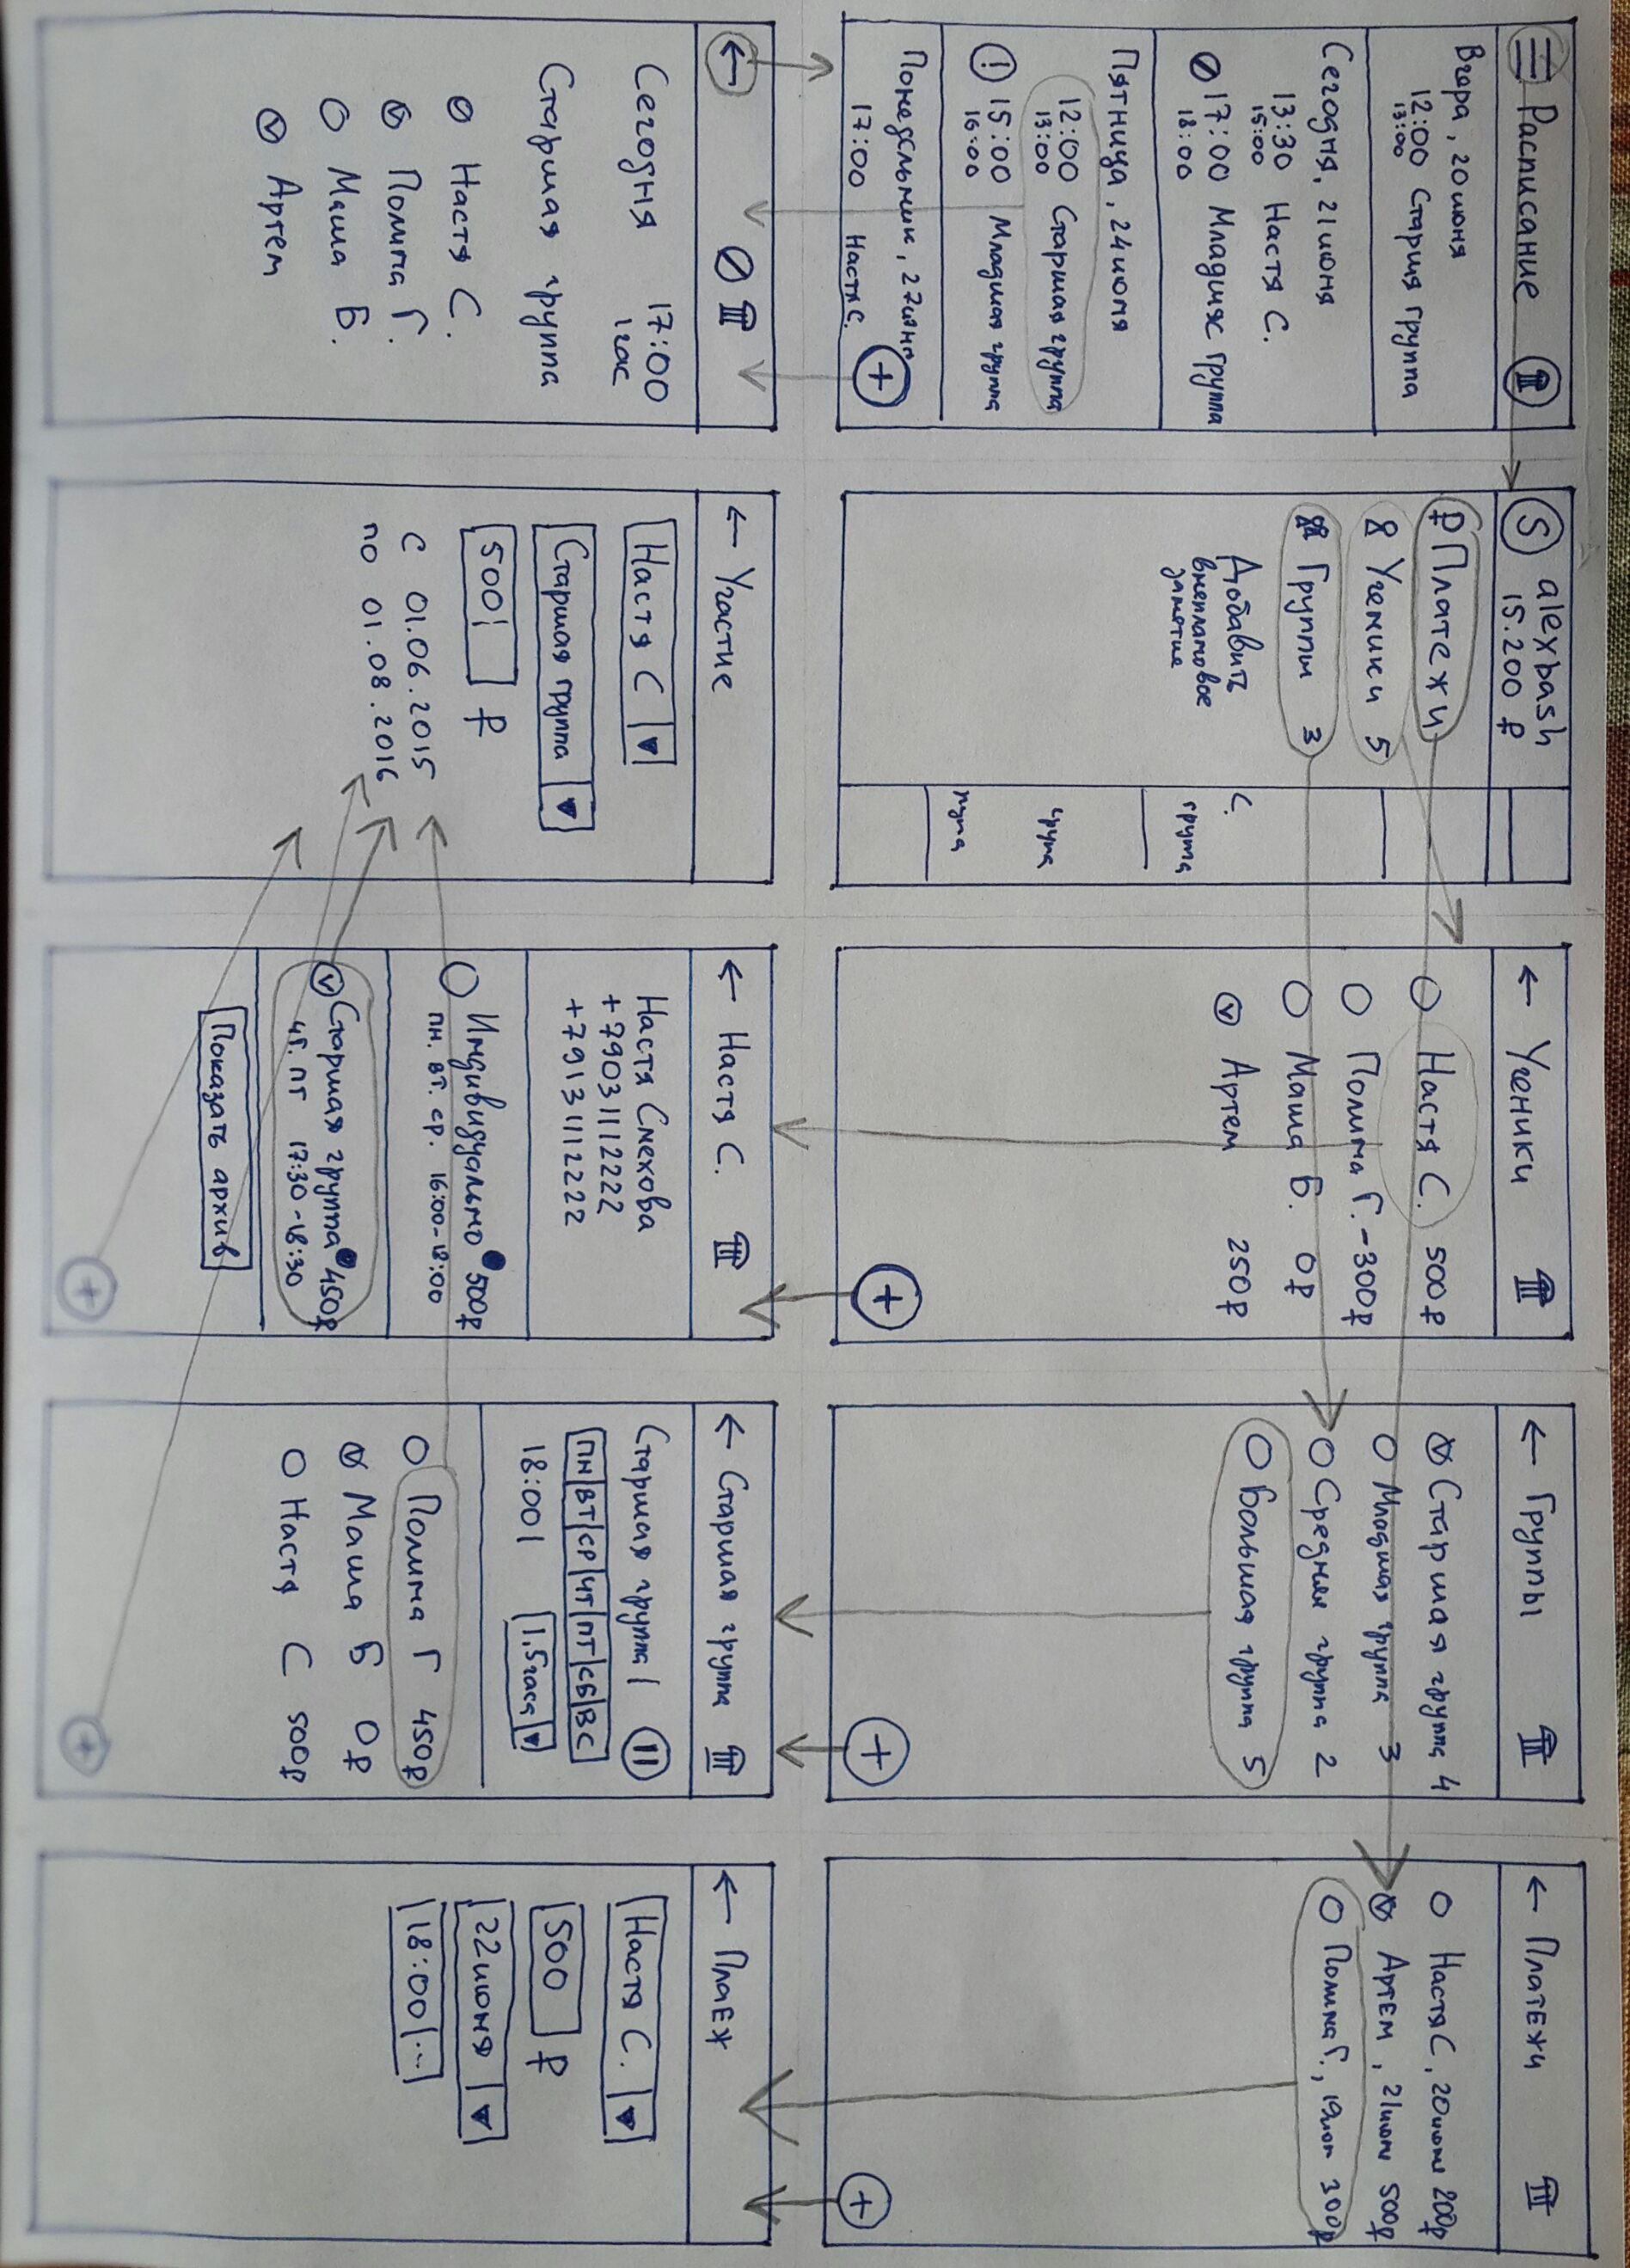 Расписание
Вчера, 20 июня
12:00 Старшя группа
13:00
Сегодня, 21 июня
13:30 Настя С.
15:00
17:00 Младшяс группа
18:00
Пятница, 24 июня
12:00 Старшая группа
13:00
! 15:00 Младшая группа
16:00
Понедельник, 27 июня
17:00 Настя С.
+
S alexbash
15.200 ₽
₽ Платежи
Ученики 5
Группы 3
Добавить
внеплановое
занятие
С.
група
група
рупа
← Ученики
Настя С. 500 ₽
Полина Г. -300 ₽
Маша Б. 0 ₽
Артем 250 ₽
+
← Группы
Старшая группа 4
Младшая группа 3
Средняя группа 2
Большая группа 5
+
← Платежи
Настя С, 20 июня 200₽
Артем, 21 июня 500₽
Полина Г., 19 июн 300₽
+
←
Сегодня 17:00
1 час
Старшая группа
Настя С.
Полина Г.
Маша Б.
Артем
← Участие
Настя С
Старшая группа
500 ₽
С 01.06.2015
по 01.08.2016
← Настя С.
Настя Смехова
+79031112222
+79131112222
Индивидуально 500₽
пн. вт. ср. 16:00-18:00
Старшая группа 450₽
чт. пт 17:30-18:30
Показать архив
+
← Старшая группа
Старшая группа
ПН ВТ СР ЧТ ПТ СБ ВС
18:00 1,5 часа
Полина Г 450₽
Маша Б 0₽
Настя С 500₽
+
← Плаеж
Настя С.
500 ₽
22 июня
18:00 ...